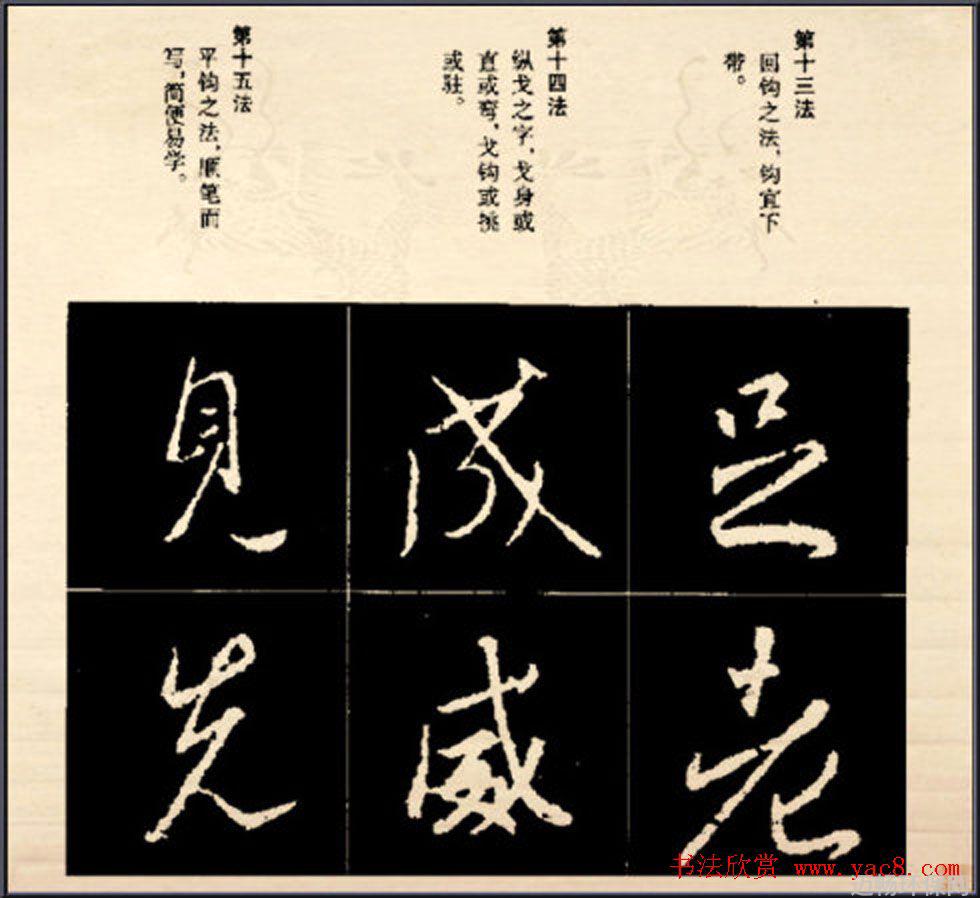 第十三法
回钩之法，钩宜下
带。
第十四法
纵戈之字，戈身或
直或弯，戈钩或挑
或驻。
第十五法
平钩之法，顺笔而
写，简便易学。
足 老
成 威
见 先
书法欣赏 www.yac8.com